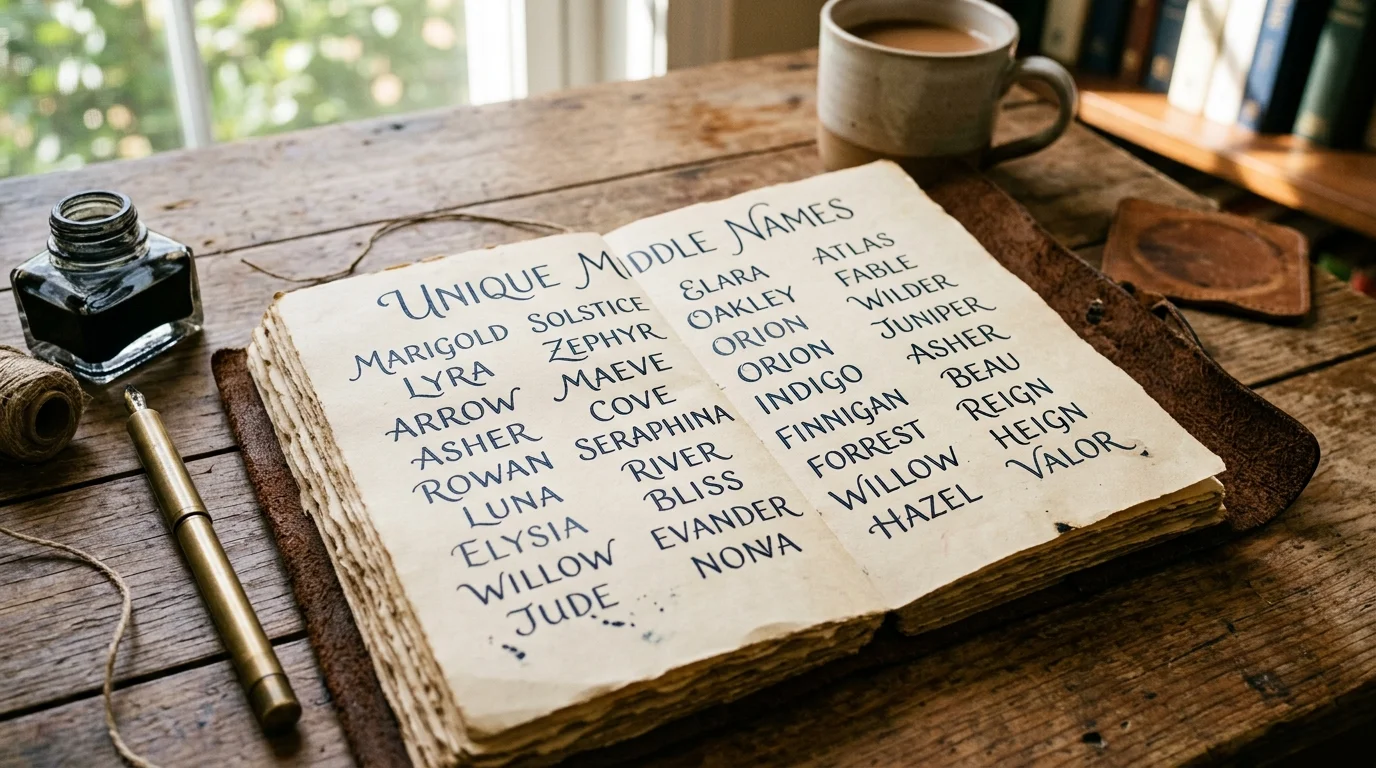 UNIQUE MIDDLE NAMES
MARIGOLD
LYRA
ARROW
ASHER
ROWAN
LUNA
ELYSIA
WILLOW
JUDE
SOLSTICE
ZEPHYR
MAEVE
COVE
SERAPHINA
RIVER
BLISS
EVANDER
NONA
ELARA
OAKLEY
ORION
ORION
INDIGO
FINNIGAN
FORREST
WILLOW
HAZEL
ATLAS
FABLE
WILDER
JUNIPER
ASHER
BEAU
REIGN
HEIGN
VALOR